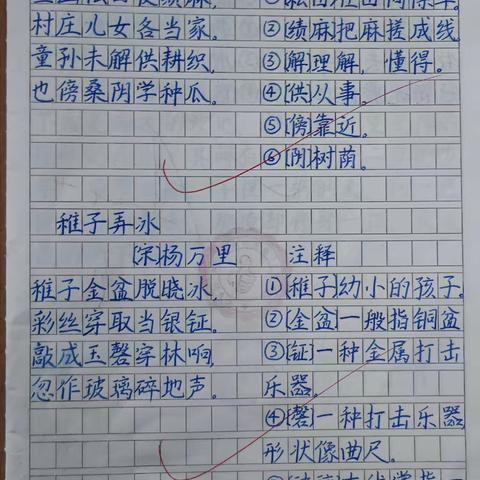 村庄儿女各当家。
童孙未解供耕织,
也傍桑阴学种瓜。
②[绩麻]把麻搓成线。
③[解]理解,懂得。
④[供]从事。
⑤[傍]靠近。
⑥[阴]树荫。
稚子弄冰
[宋]杨万里
稚子金盆脱晓冰,
彩丝穿取当银钲。
敲成玉磬穿林响,
忽作玻璃碎地声。
注释
①[稚子]幼小的孩子。
②[金盆]一般指铜盆
③[钲]一种金属打击
乐器。
④[磬]一种打击乐器
形状像曲尺。